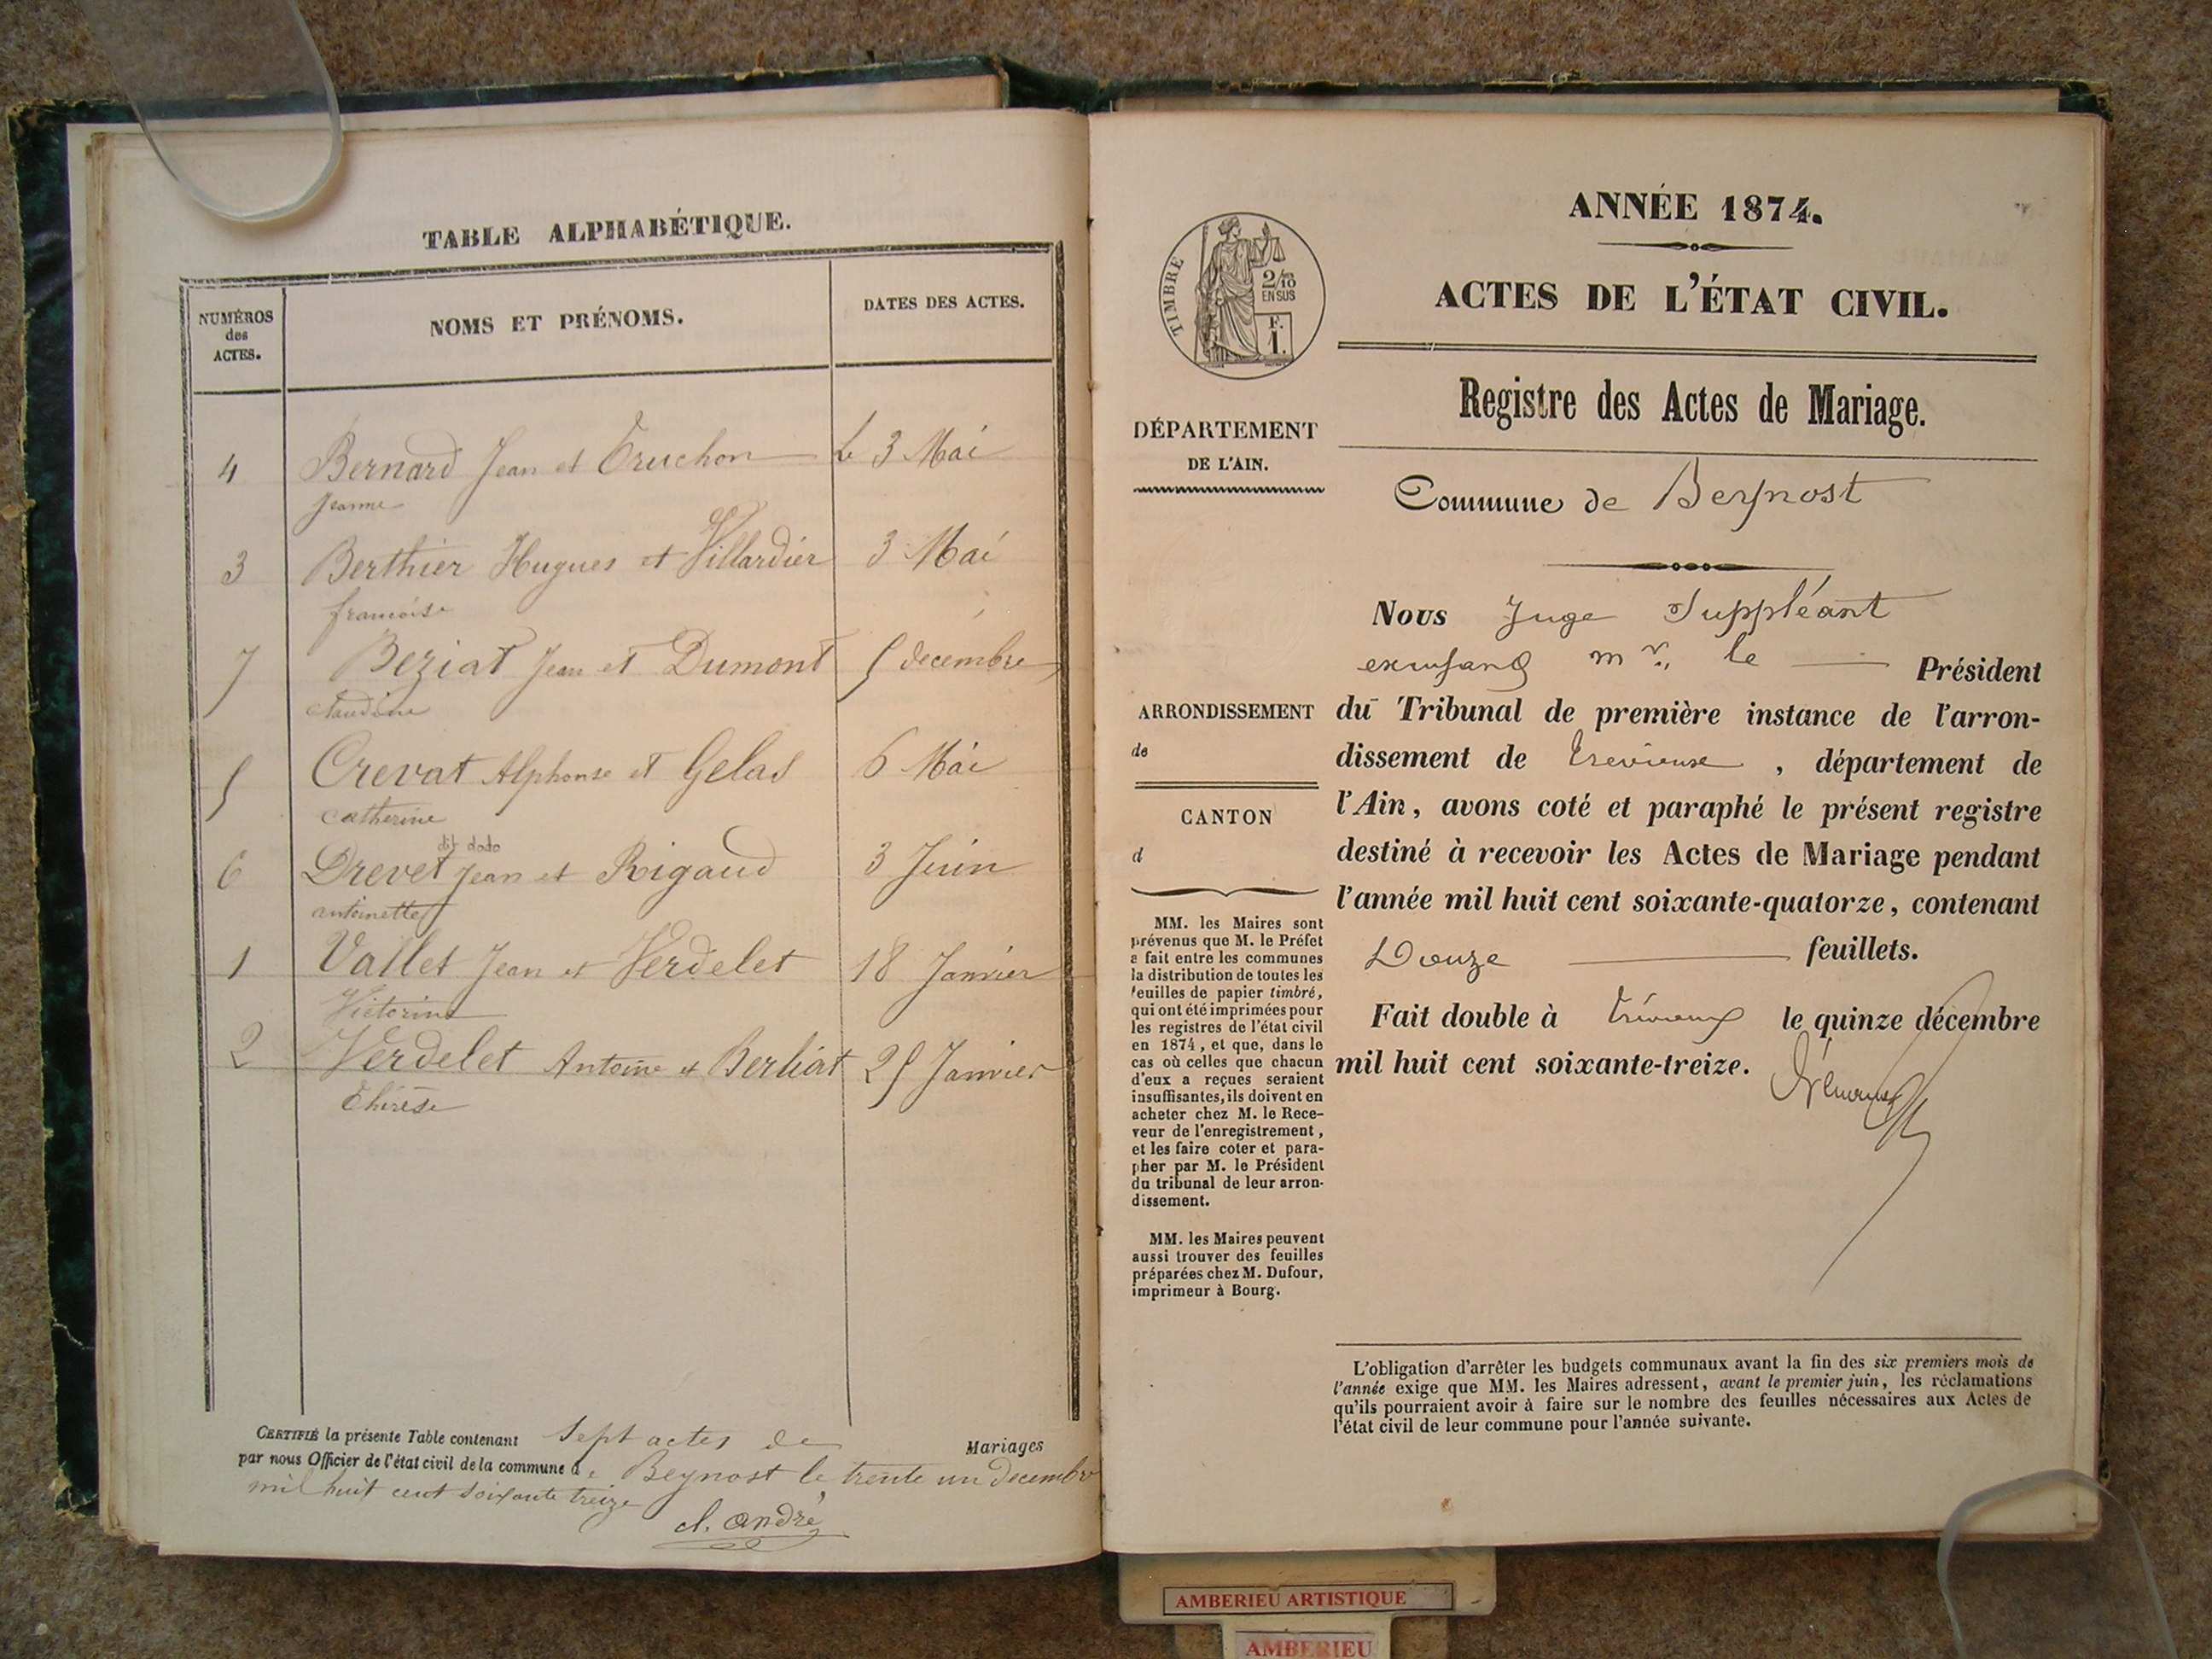 TABLE ALPHABÉTIQUE.
NUMÉROS
des
ACTES.
NOMS ET PRÉNOMS.
DATES DES ACTES.
4 Bernard Jean et Truchon Le 3 Mai
Jeanne
3 Berthier Hugues et Villardier 3 Mai
francoise
7 Beziat Jean et Dumont 5 decembre
claudine
5 Crevat Alphonse et Gelas 6 Mai
catherine
dit dodo
6 Drevet Jean et Rigaud 3 Juin
antoinette
1 Vallet Jean et Verdelet 18 Janvier
Victorine
2 Verdelet Antoine et Berliat 25 Janvier
Thérèse
CERTIFIÉ la présente Table contenant Sept actes de Mariages
par nous Officier de l'état civil de la commune d e Beynost le trente un decembre
mil huit cent soixante treize
cl. andré
TIMBRE
2/10
EN SUS
F.
1.
ANNÉE 1874.
ACTES DE L'ÉTAT CIVIL.
Registre des Actes de Mariage.
DÉPARTEMENT
DE L'AIN.
Commune de Beynost
Nous Juge Suppléant
mr. le Président
du Tribunal de première instance de l'arron-
dissement de , département de
l'Ain, avons coté et paraphé le présent registre
destiné à recevoir les Actes de Mariage pendant
l'année mil huit cent soixante-quatorze, contenant
Douze feuillets.
Fait double à Trévoux le quinze décembre
mil huit cent soixante-treize.
ARRONDISSEMENT
de
CANTON
d
MM. les Maires sont
prévenus que M. le Préfet
a fait entre les communes
la distribution de toutes les
feuilles de papier timbré,
qui ont été imprimées pour
les registres de l'état civil
en 1874, et que, dans le
cas où celles que chacun
d'eux a reçues seraient
insuffisantes, ils doivent en
acheter chez M. le Rece-
veur de l'enregistrement,
et les faire coter et para-
pher par M. le Président
du tribunal de leur arron-
dissement.
MM. les Maires peuvent
aussi trouver des feuilles
préparées chez M. Dufour,
imprimeur à Bourg.
L'obligation d'arrêter les budgets communaux avant la fin des six premiers mois de
l'année exige que MM. les Maires adressent, avant le premier juin, les réclamations
qu'ils pourraient avoir à faire sur le nombre des feuilles nécessaires aux Actes de
l'état civil de leur commune pour l'année suivante.
AMBERIEU ARTISTIQUE
AMBERIEU